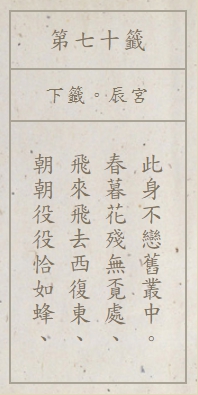 第七十籤
下籤。辰宮
朝朝役役恰如蜂、
飛來飛去西復東、
春暮花殘無覔處、
此身不戀舊叢中。